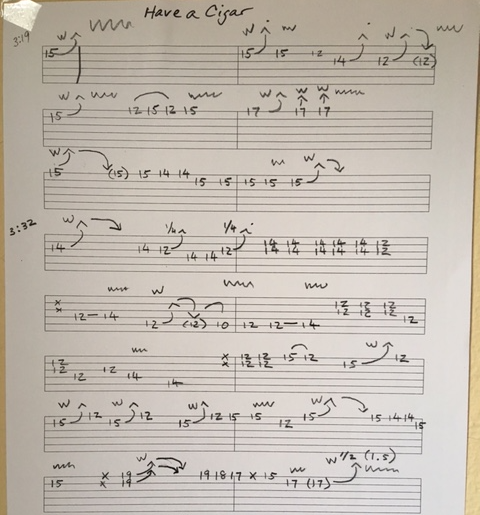 Have a Cigar
3:19 W W W
15 15 15 12 14 12 (12)
W W W W
15 12 15 12 15 17 17 17
W W
15 (15) 15 14 14 15 15 15 15 15
3:32 W 1/4 1/4
14 14 12 14 14 12 14 14 14 14 14 12
14 14 14 14 14 12
W
x 12 12 12
x 12-14 12 (12) 10 12 12-14 12 12 12 12
W
12 x 12 12 15 12 15 12
12 12 12 14 14 x 12 12
W W W W
15 12 15 12 15 12 15 15 12 15 15 14 14 15
W W 1/2 (1.5)
15 x 19 19 18 17 x 15 17 (17)
x 19